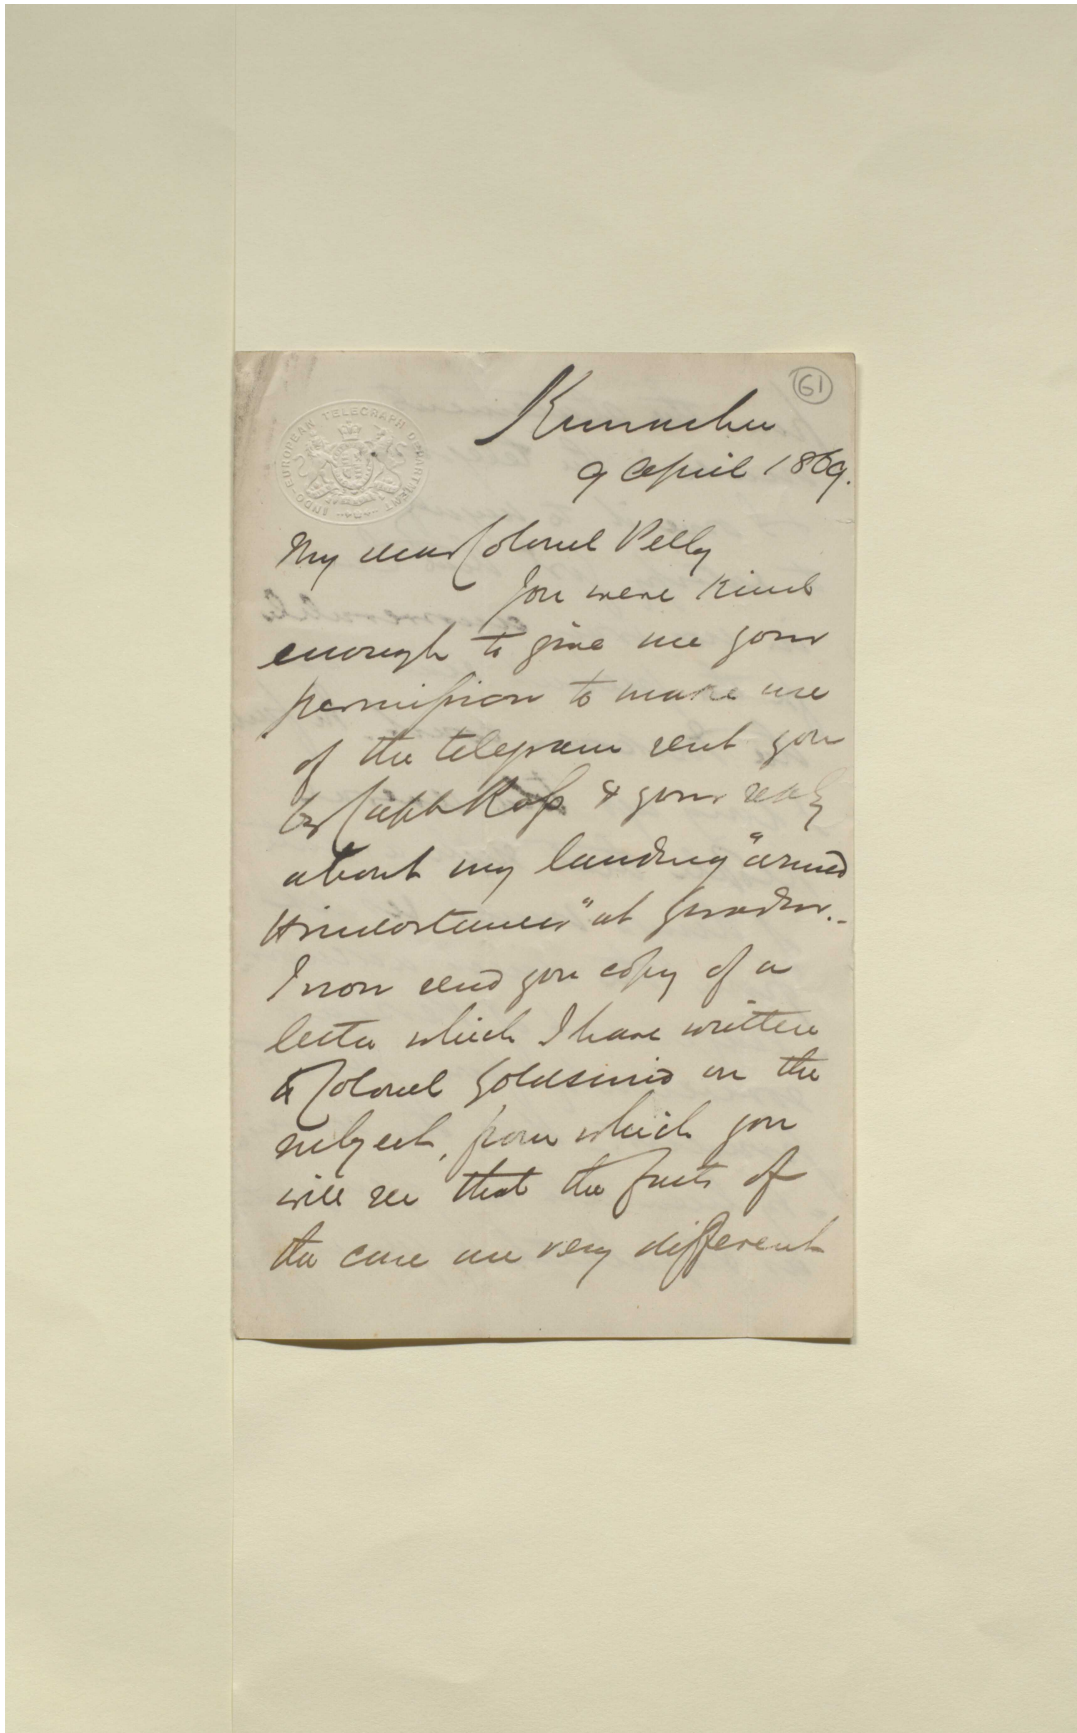 61
INDO-EUROPEAN TELEGRAPH DEPARTMENT
Kurrachee
9 April 1869.
My dear Colonel Pelly
You were kind
enough to give me your
permission to make use
of the telegram sent you
by Capt Ross & your reply
about my landing "armed
Hindostanees" at Gwadur.
I now send you copy of a
letter which I have written
to Colonel Goldsmid on the
subject, from which you
will see that the facts of
the case are very different